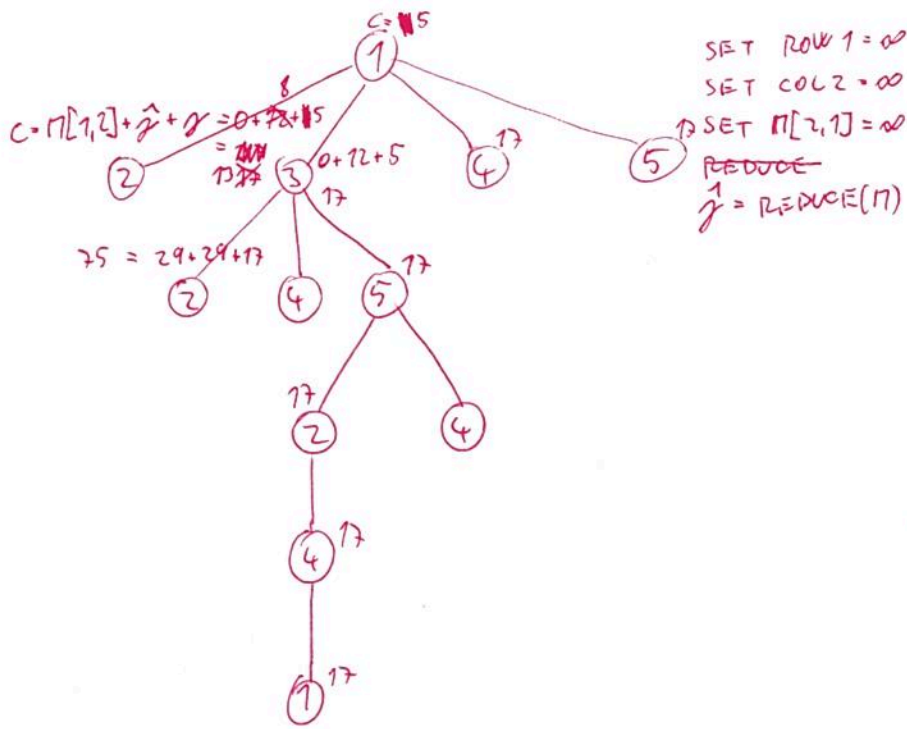 C = 5
1
SET ROW 1 = ∞
SET COL 2 = ∞
SET M[2,1] = ∞
REDUCE
γ̂ = REDUCE(M)
8
C = M[1,2] + γ̂ + γ = 0 + 12 + 5
=
13 17
2
3
0+12+5
17
4
17
5
17
75 = 29+29+17
2
4
5
17
17
2
4
4
17
1
17